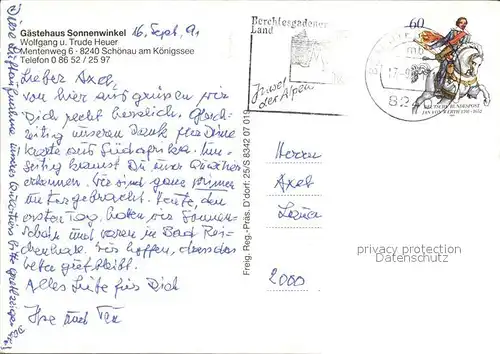 Gästehaus Sonnenwinkel 16. Sept. 91
Wolfgang u. Trude Heuer
Mentenweg 6 · 8240 Schönau am Königssee
Telefon 0 86 52 / 25 97
Lieber Axel,
von hier aus grüssen wir
Dich recht herzlich. Gleich-
zeitig unseren Dank für Deine
Karte aus Südafrika. Um-
seitig kannst Du unser Quartier
erkennen. Wir sind ganz prima
untergebracht. Heute, den
ersten Tag, hatten wir Sonnen-
schein und waren in Bad Rei-
chenhall. Wir hoffen, dass das
Wetter gut bleibt.
Alles Liebe für Dich
Ilse und
Freig. Reg.-Präs. D'dorf: 25/S 8342 07 01
Berchtesgadener
Land
Insel
der Alpen
60
DEUTSCHE BUNDESPOST
JAN VON WERTH 1591-1652
Herrn
Axel
2000
privacy protection
Datenschutz